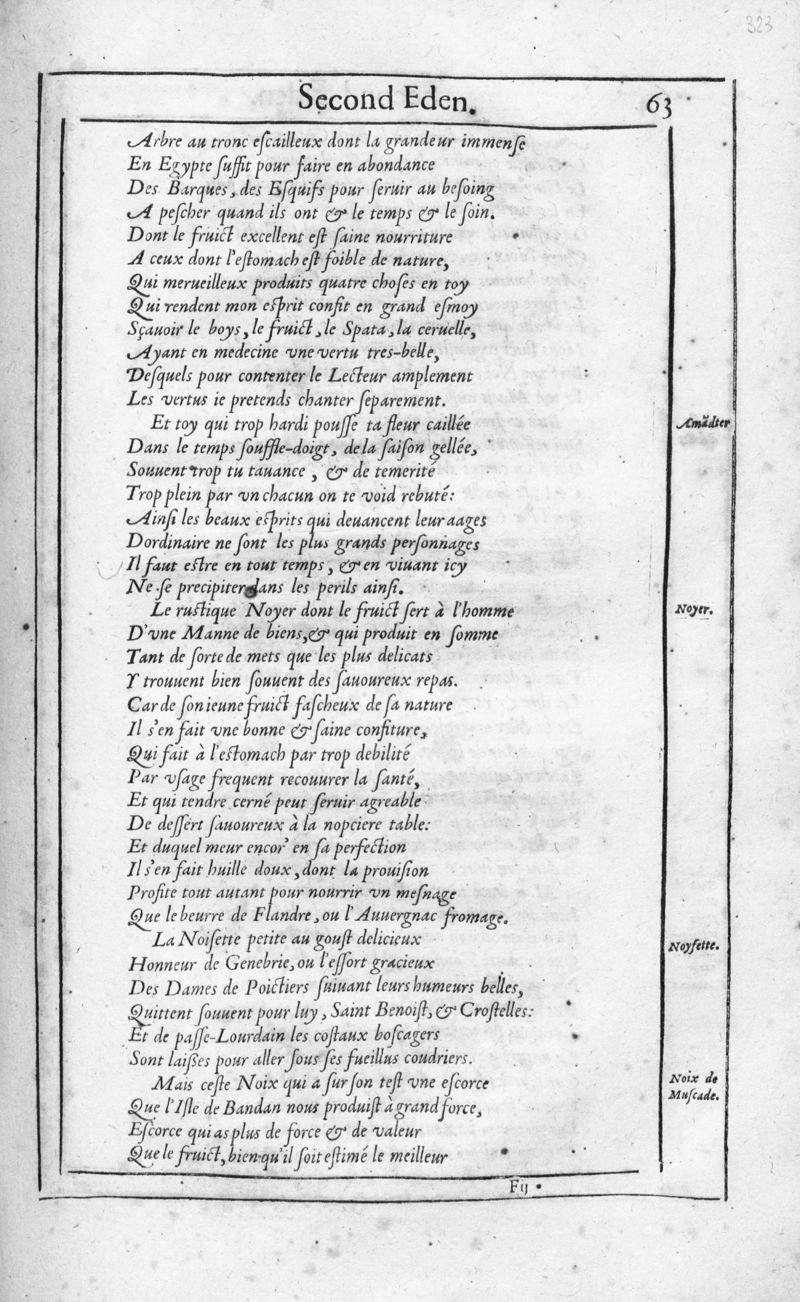 323
Second Eden. 63
Arbre au tronc eſcailleux dont la grandeur immenſe
En Egypte ſuffit pour faire en abondance
Des Barques, des Eſquifs pour ſeruir au beſoing
A peſcher quand ils ont & le temps & le ſoin.
Dont le fruict excellent eſt ſaine nourriture
A ceux dont l'eſtomach eſt foible de nature,
Qui merueilleux produits quatre choſes en toy
Qui rendent mon eſprit confit en grand eſmoy
Sçauoir le boys, le fruict, le Spata, la ceruelle,
Ayant en medecine vne vertu tres-belle,
Deſquels pour contenter le Lecteur amplement
Les vertus ie pretends chanter ſeparement.
Et toy qui trop hardi pouſſe ta fleur caillée
Amãdier
Dans le temps ſouffle-doigt, de la ſaiſon gellée,
Souuent trop tu tauance, & de temerité
Trop plein par vn chacun on te void rebuté:
Ainſi les beaux eſprits qui deuancent leur aages
Dordinaire ne ſont les plus grands perſonnages
Il faut eſtre en tout temps, & en viuant icy
Ne ſe precipiter dans les perils ainſi.
Le ruſtique Noyer dont le fruict ſert à l'homme
Noyer.
D'vne Manne de biens, & qui produit en ſomme
Tant de ſorte de mets que les plus delicats
Y trouuent bien ſouuent des ſauoureux repas.
Car de ſon ieune fruict faſcheux de ſa nature
Il s'en fait vne bonne & ſaine confiture,
Qui fait à l'eſtomach par trop debilité
Par vſage frequent recouurer la ſanté,
Et qui tendre cerné peut ſeruir agreable
De deſſert ſauoureux à la nopciere table:
Et duquel meur encor' en ſa perfection
Il s'en fait huille doux, dont la prouiſion
Profite tout autant pour nourrir vn meſnage
Que le beurre de Flandre, ou l'Auuergnac fromage.
La Noiſette petite au gouſt delicieux
Noyſette.
Honneur de Genebrie, ou l'eſſort gracieux
Des Dames de Poictiers ſuiuant leurs humeurs belles,
Quittent ſouuent pour luy, Saint Benoiſt, & Croſtelles:
Et de paſſe-Lourdain les coſtaux boſcagers
Sont laißes pour aller ſous ſes fueillus coudriers.
Mais ceſte Noix qui a ſur ſon teſt vne eſcorce
Noix de
Muſcade.
Que l'Iſle de Bandan nous produiſt à grand force,
Eſcorce qui as plus de force & de valeur
Que le fruict, bien qu'il ſoit eſtimé le meilleur
Fij